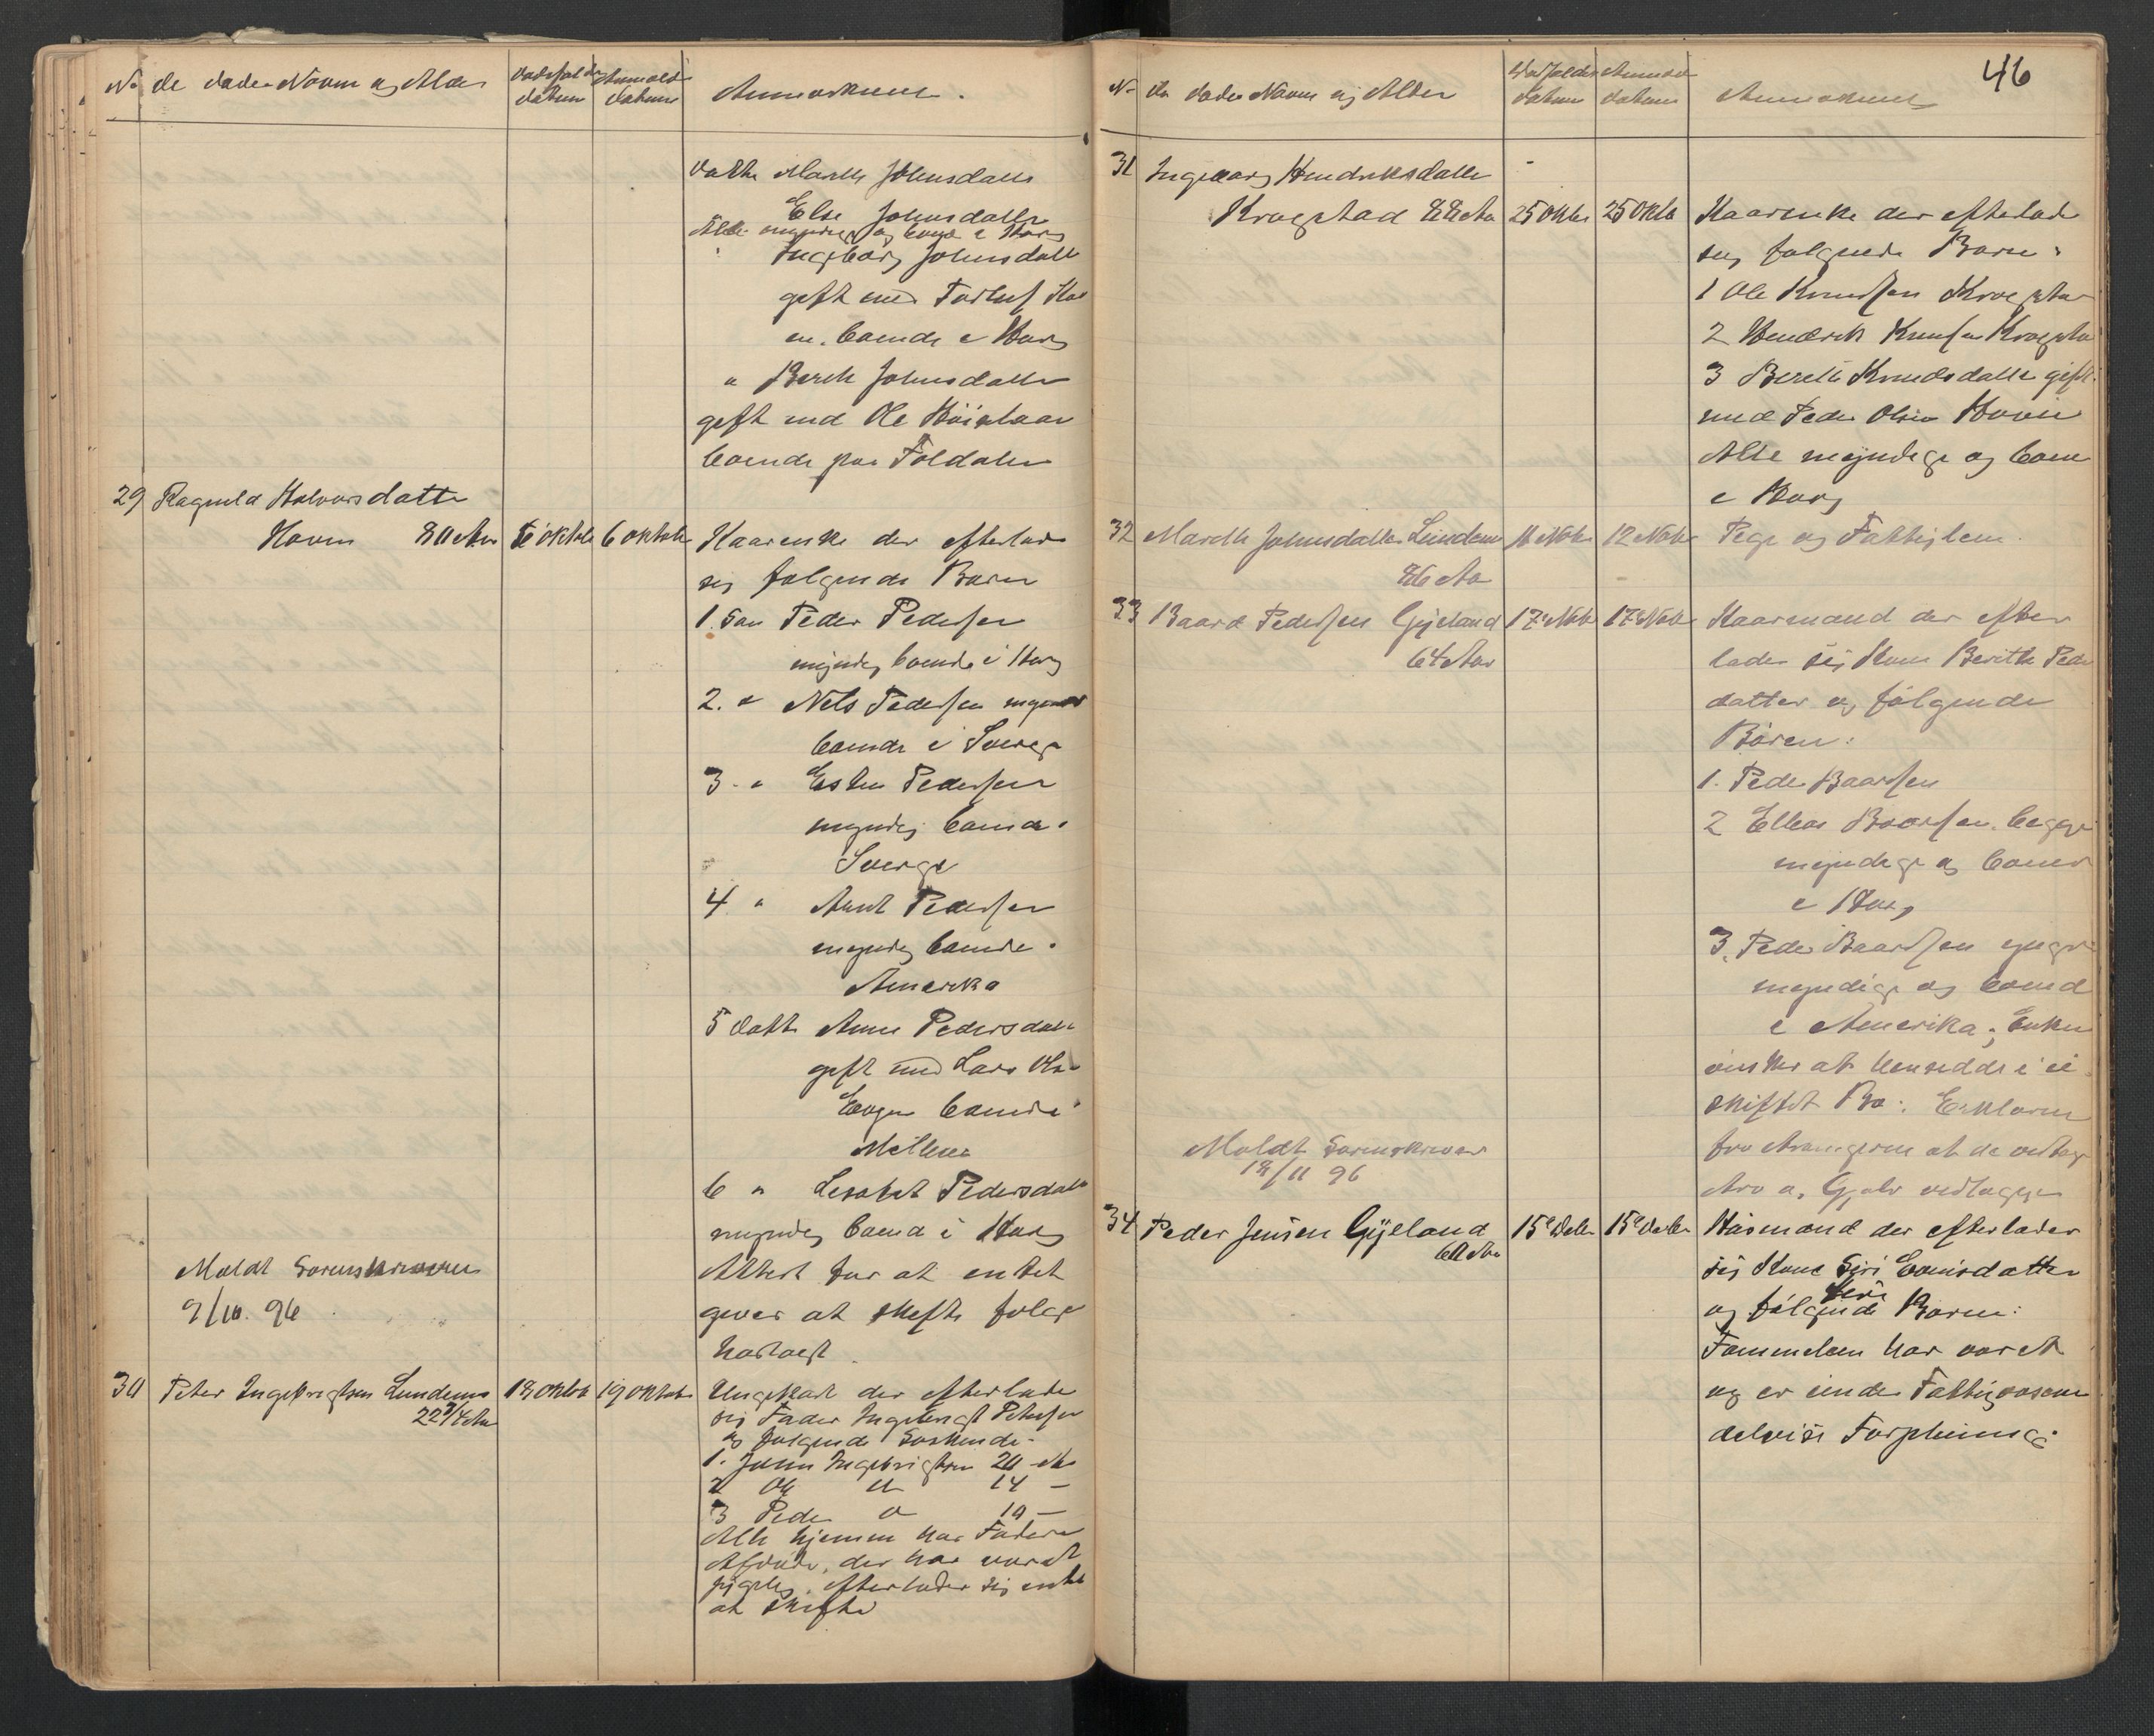 No de dødes Navn og Alder Dødsfalds datum Anmeldt datum Anmærkning.
Datter Marith Johnsdatter
Else Johnsdatter
Alle myndige og boende i Horg
Ingeborg Johnsdatt
gift med Torluf
en. boende i Horg
" Berit Johnsdatter
gift med Ole
boende paa Foldalen
29 Ragnild Halvorsdatter
Hovin 80 Aar 6 oktob 6 oktob Kaarenke der efterlader
sig følgende Børn
1. Søn Peder Pedersen
myndig boende i Horg
2. " Nels Pedersen myndig
boende i Sverge
3 - " Esten Pedersen
myndig boende i
Sverge
4 " Arnt Pedersen
myndig boende i
Amerika
5 Datt Anne Pedersdatt
gift med Lars Ols
Eogen boende i
Melhus
6 " Lesabet Pedersdatt
myndig boende i Horg
Attest for at intet
gives at skifte følger
hoslagt
Meldt Sorenskriveren
9/10. 96
30 Peter Ingebrigtsen Lundemo 18 oktob 19 oktob Ungkarl der efterlader
22 3/4 Aar sig Fader Ingebrigt Petersen
og følgende Søskende.
1. John Ingebrigtsen 20 Aar
2 Ole " 14 —
3 Peder " 10 —
Alle hjemme hos Faderen
Afdøde, der har været
sygelig, efterlader sig intet
at skifte
46
No de dødes Navn og Alder Dødsfalds datum Anmeldt datum Anmærkning
31 Ingeborg Hendriksdatter
Krogstad 88 Aar 25 Oktbr 25 Oktb Kaarenke der efterlader
sig følgende Børn:
1 Ole Knudsen Krogstad
2 Hendrik Knudsen Krogstad
3 Berith Knudsdatter gift
med Peder Olsen Hovin
Alle myndige og boende
i Horg
32 Marith Johnsdatter Lundemo 11 Novb 12 Novb Pige og Fattiglem.
86 Aar
33 Baard Pedersen Gylland 17 Novb 17 Novb Kaarmand der efter
64 Aar lader sig Kone Berith Peders
datter og følgende
Børen:
1. Peder Baardsen
2 Ellias Baardsen. begge
myndige og boende
i Horg
3. Peder Baardsen yngre
myndige og boende
i Amerika; Enken
ønsker at hensidde i u
skiftet Bo. Erklæring
fra Arvingerne at de vedtager
Arv og Gjeld vedlægges
Meldt Sorenskriver
18/11 96
34 Peder Jensen Gylland 15de Decbr 15de Decbr Husmand der efterlader
60 Aar sig Kone Siri Evensdatter
og følgende Børn:
Fammelien har været
og er under Fattigvæsenets
delvise Forpleining.